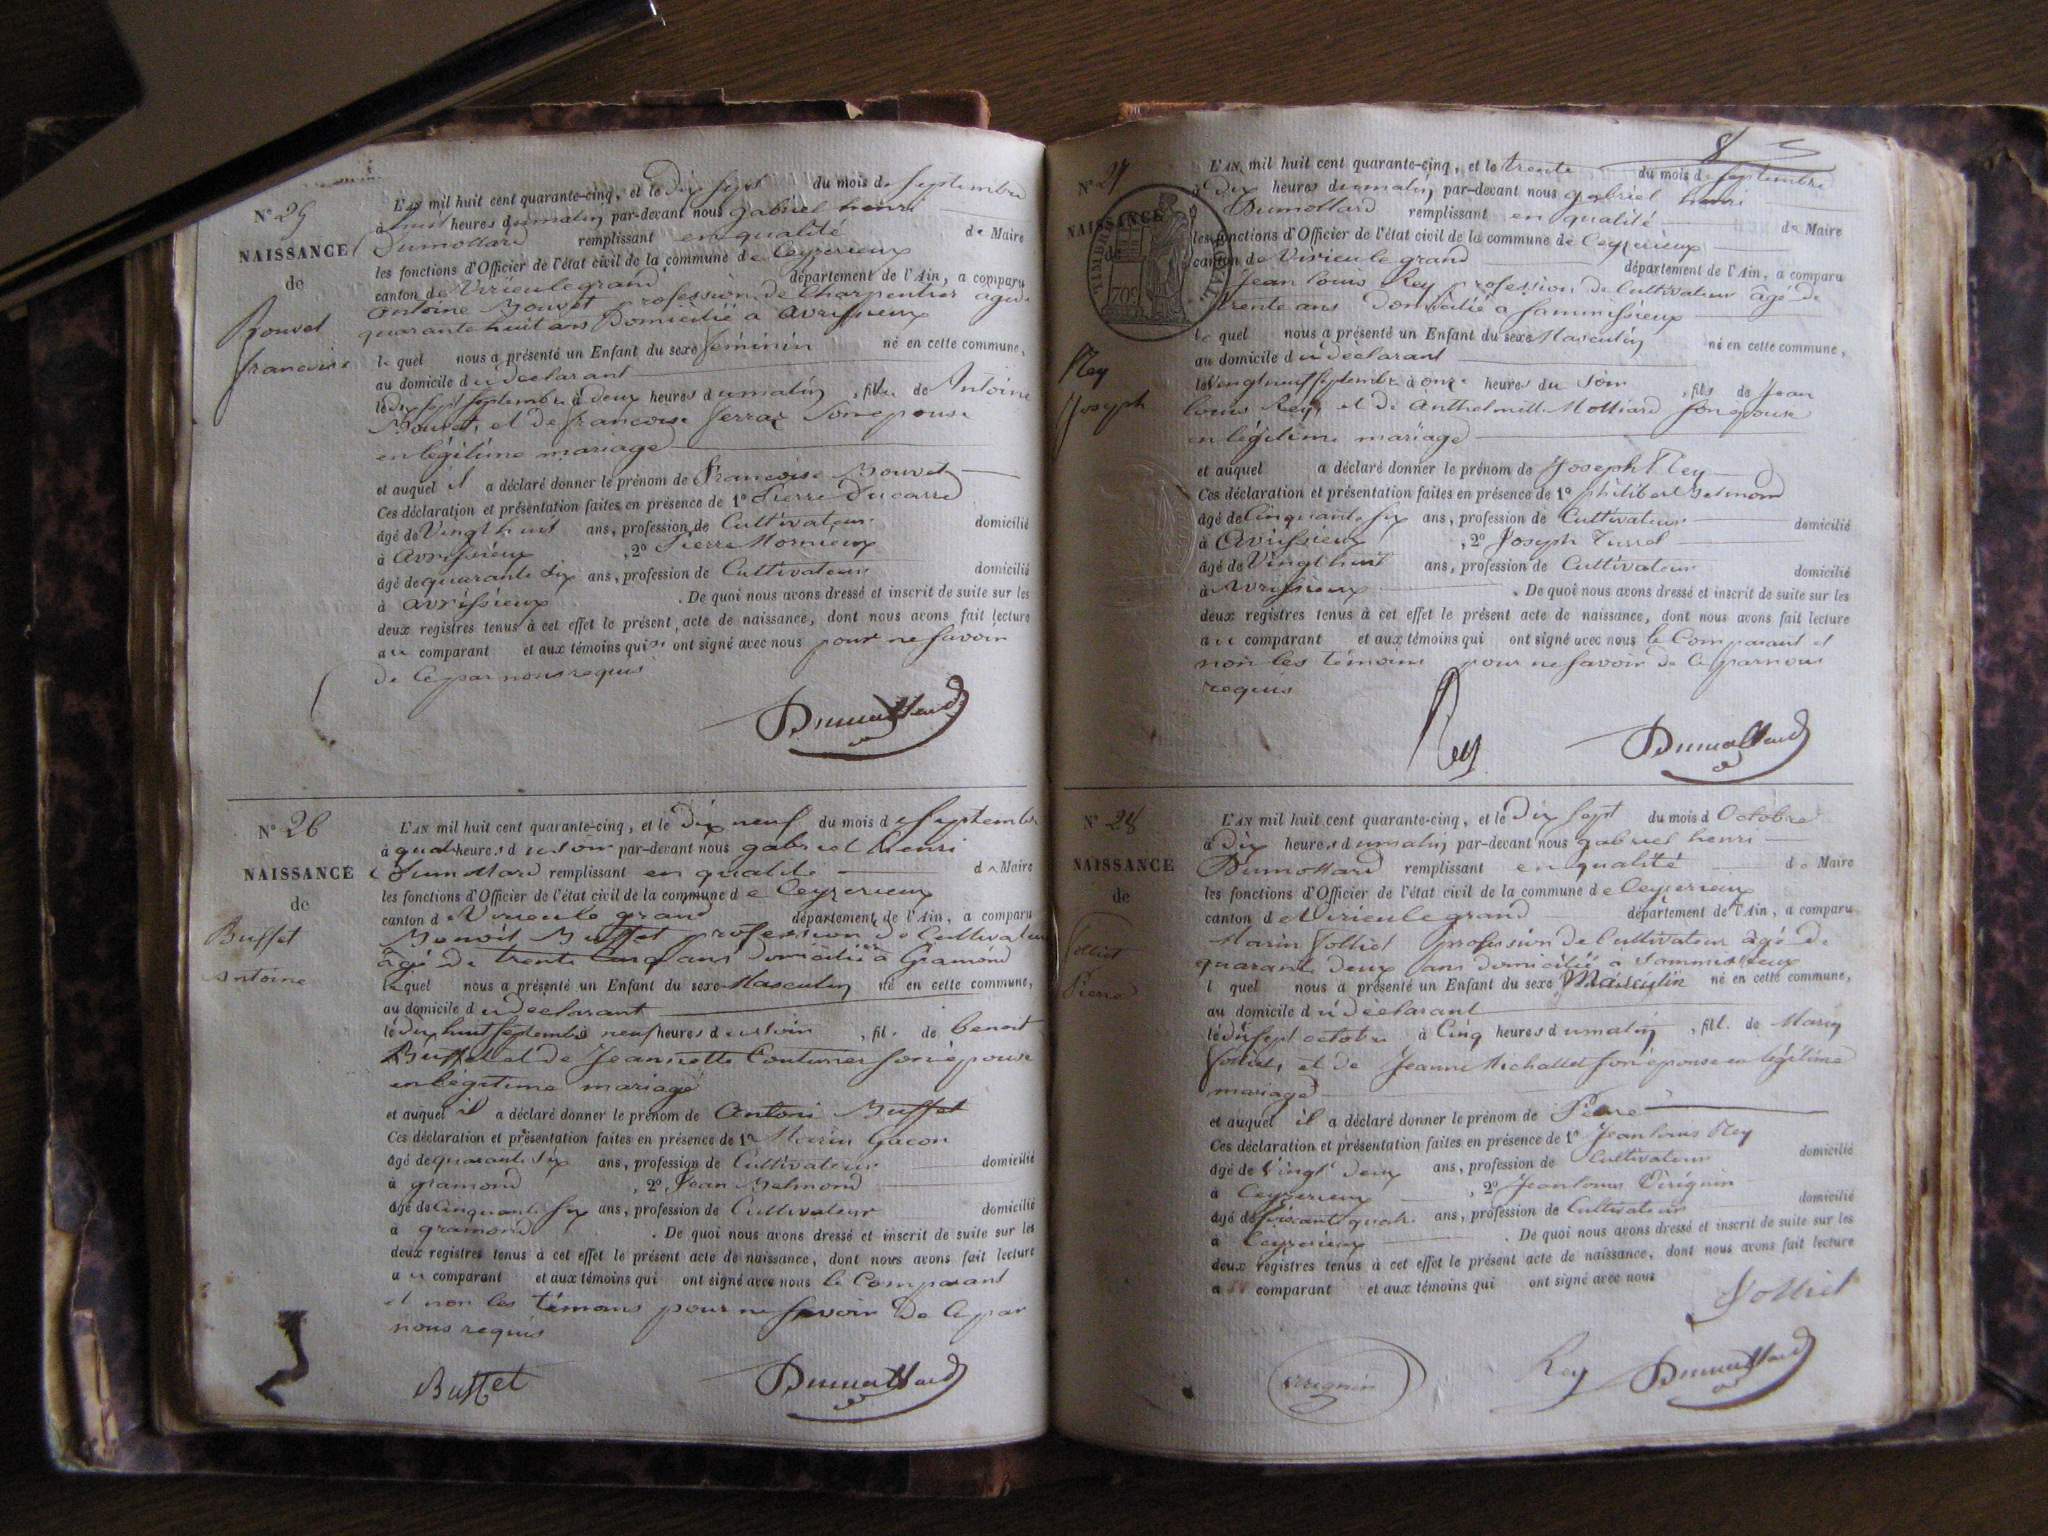 N° 25
NAISSANCE
de
Bouvet
francoise
L'AN mil huit cent quarante-cinq, et le Dix Sept du mois de Septembre
à huit heures du matin, par-devant nous gabriel henri
Dumollard remplissant en qualité de Maire
les fonctions d'Officier de l'état civil de la commune de Ceyzerieux
canton de Virieulegrand département de l'Ain, a comparu
Antoine Bouvet profession de Charpentier agé de
quarante huit ans Domicilié a avrissieux
le quel nous a présenté un Enfant du sexe féminin né en cette commune,
au domicile du déclarant
le dix sept Septembre à deux heures du matin, fille de Antoine
Bouvet, et de francoise ferraz Son epouse
en légitime mariage
et auquel il a déclaré donner le prénom de francoise Bouvet
Ces déclaration et présentation faites en présence de 1° Pierre Ducarre
âgé de Vingt huit ans, profession de Cultivateur domicilié
à Avrissieux, 2° Pierre Mornieux
âgé de quarante six ans, profession de Cultivateur domicilié
à avrissieux. De quoi nous avons dressé et inscrit de suite sur les
deux registres tenus à cet effet le présent acte de naissance, dont nous avons fait lecture
au comparant et aux témoins qui n' ont signé avec nous pour ne Savoir
de Ce par nous requis
Dumollard
N° 26
NAISSANCE
de
Buffet
Antoine
L'AN mil huit cent quarante-cinq, et le Dix neuf du mois de Septembre
à quatre heures du soir par-devant nous gabriel henri
Dumollard remplissant en qualité de Maire
les fonctions d'Officier de l'état civil de la commune de Ceyzerieux
canton de Virieu le grand département de l'Ain, a comparu
Benoit Buffet profession de Cultivateur
âgé de trente Cinq ans domicilié à Gramond
le quel nous a présenté un Enfant du sexe Masculin né en cette commune,
au domicile du déclarant
le dix huit Septembre à neuf heures du soir, fils de benoit
Buffet et de Jeannette Couturier Son épouse
en légitime mariage
et auquel il a déclaré donner le prénom de Antoni Buffet
Ces déclaration et présentation faites en présence de 1° Marin Gacon
âgé de quarante six ans, profession de Cultivateur domicilié
à gramond, 2° Jean Belmond
âgé de Cinquante Six ans, profession de Cultivateur domicilié
à gramond. De quoi nous avons dressé et inscrit de suite sur les
deux registres tenus à cet effet le présent acte de naissance, dont nous avons fait lecture
au comparant et aux témoins qui ont signé avec nous le Comparant
et non les témoins pour ne Savoir de Ce par
nous requis
Buffet Dumollard
8
N° 27
NAISSANCE
de
TIMBRE ROYAL
70c
Rey
Joseph
L'AN mil huit cent quarante-cinq, et le trente du mois de Septembre
à dix heures du matin, par-devant nous gabriel henri
Dumollard remplissant en qualité de Maire
les fonctions d'Officier de l'état civil de la commune de Ceyzerieux
canton de Virieu le grand département de l'Ain, a comparu
Jean louis Rey profession de Cultivateur âgé de
trente ans Domicilié a Sammissieux
le quel nous a présenté un Enfant du sexe Masculin né en cette commune,
au domicile du déclarant
le vingt neuf Septembre à onze heures du Soir, fils de Jean
louis Rey, et de Anthelmette Molliard Son epouse
en légitime mariage
et auquel a déclaré donner le prénom de Joseph Rey
Ces déclaration et présentation faites en présence de 1° philibert Belmond
âgé de Cinquante six ans, profession de Cultivateur domicilié
à Avrissieux, 2° Joseph Turrel
âgé de Vingt huit ans, profession de Cultivateur domicilié
à Avrissieux. De quoi nous avons dressé et inscrit de suite sur les
deux registres tenus à cet effet le présent acte de naissance, dont nous avons fait lecture
au comparant et aux témoins qui ont signé avec nous le Comparant et
non les témoins pour ne Savoir de Ce par nous
requis
Rey Dumollard
N° 28
NAISSANCE
de
Folliet
Pierre
L'AN mil huit cent quarante-cinq, et le Dix Sept du mois d Octobre
à Dix heures du matin, par-devant nous gabriel henri
Dumollard remplissant en qualité de Maire
les fonctions d'Officier de l'état civil de la commune de Ceyzerieux
canton de Virieu le grand département de l'Ain, a comparu
Marin Folliet profession de Cultivateur âgé de
quarante deux ans domicilié a Sammissieux
l quel nous a présenté un Enfant du sexe Masculin né en cette commune,
au domicile du déclarant
le dix sept octobre à Cinq heures du matin, fils de Marin
folliet, et de Jeanne Michallet son épouse en légitime
mariage
et auquel il a déclaré donner le prénom de Pierre
Ces déclaration et présentation faites en présence de 1° Jean louis Rey
âgé de vingt deux ans, profession de Cultivateur domicilié
à Ceyzerieux, 2° Jean louis Pérignin
âgé de soixante quatre ans, profession de Cultivateur domicilié
à Ceyzerieux. De quoi nous avons dressé et inscrit de suite sur les
deux registres tenus à cet effet le présent acte de naissance, dont nous avons fait lecture
au comparant et aux témoins qui ont signé avec nous
Folliet
Rey Dumollard